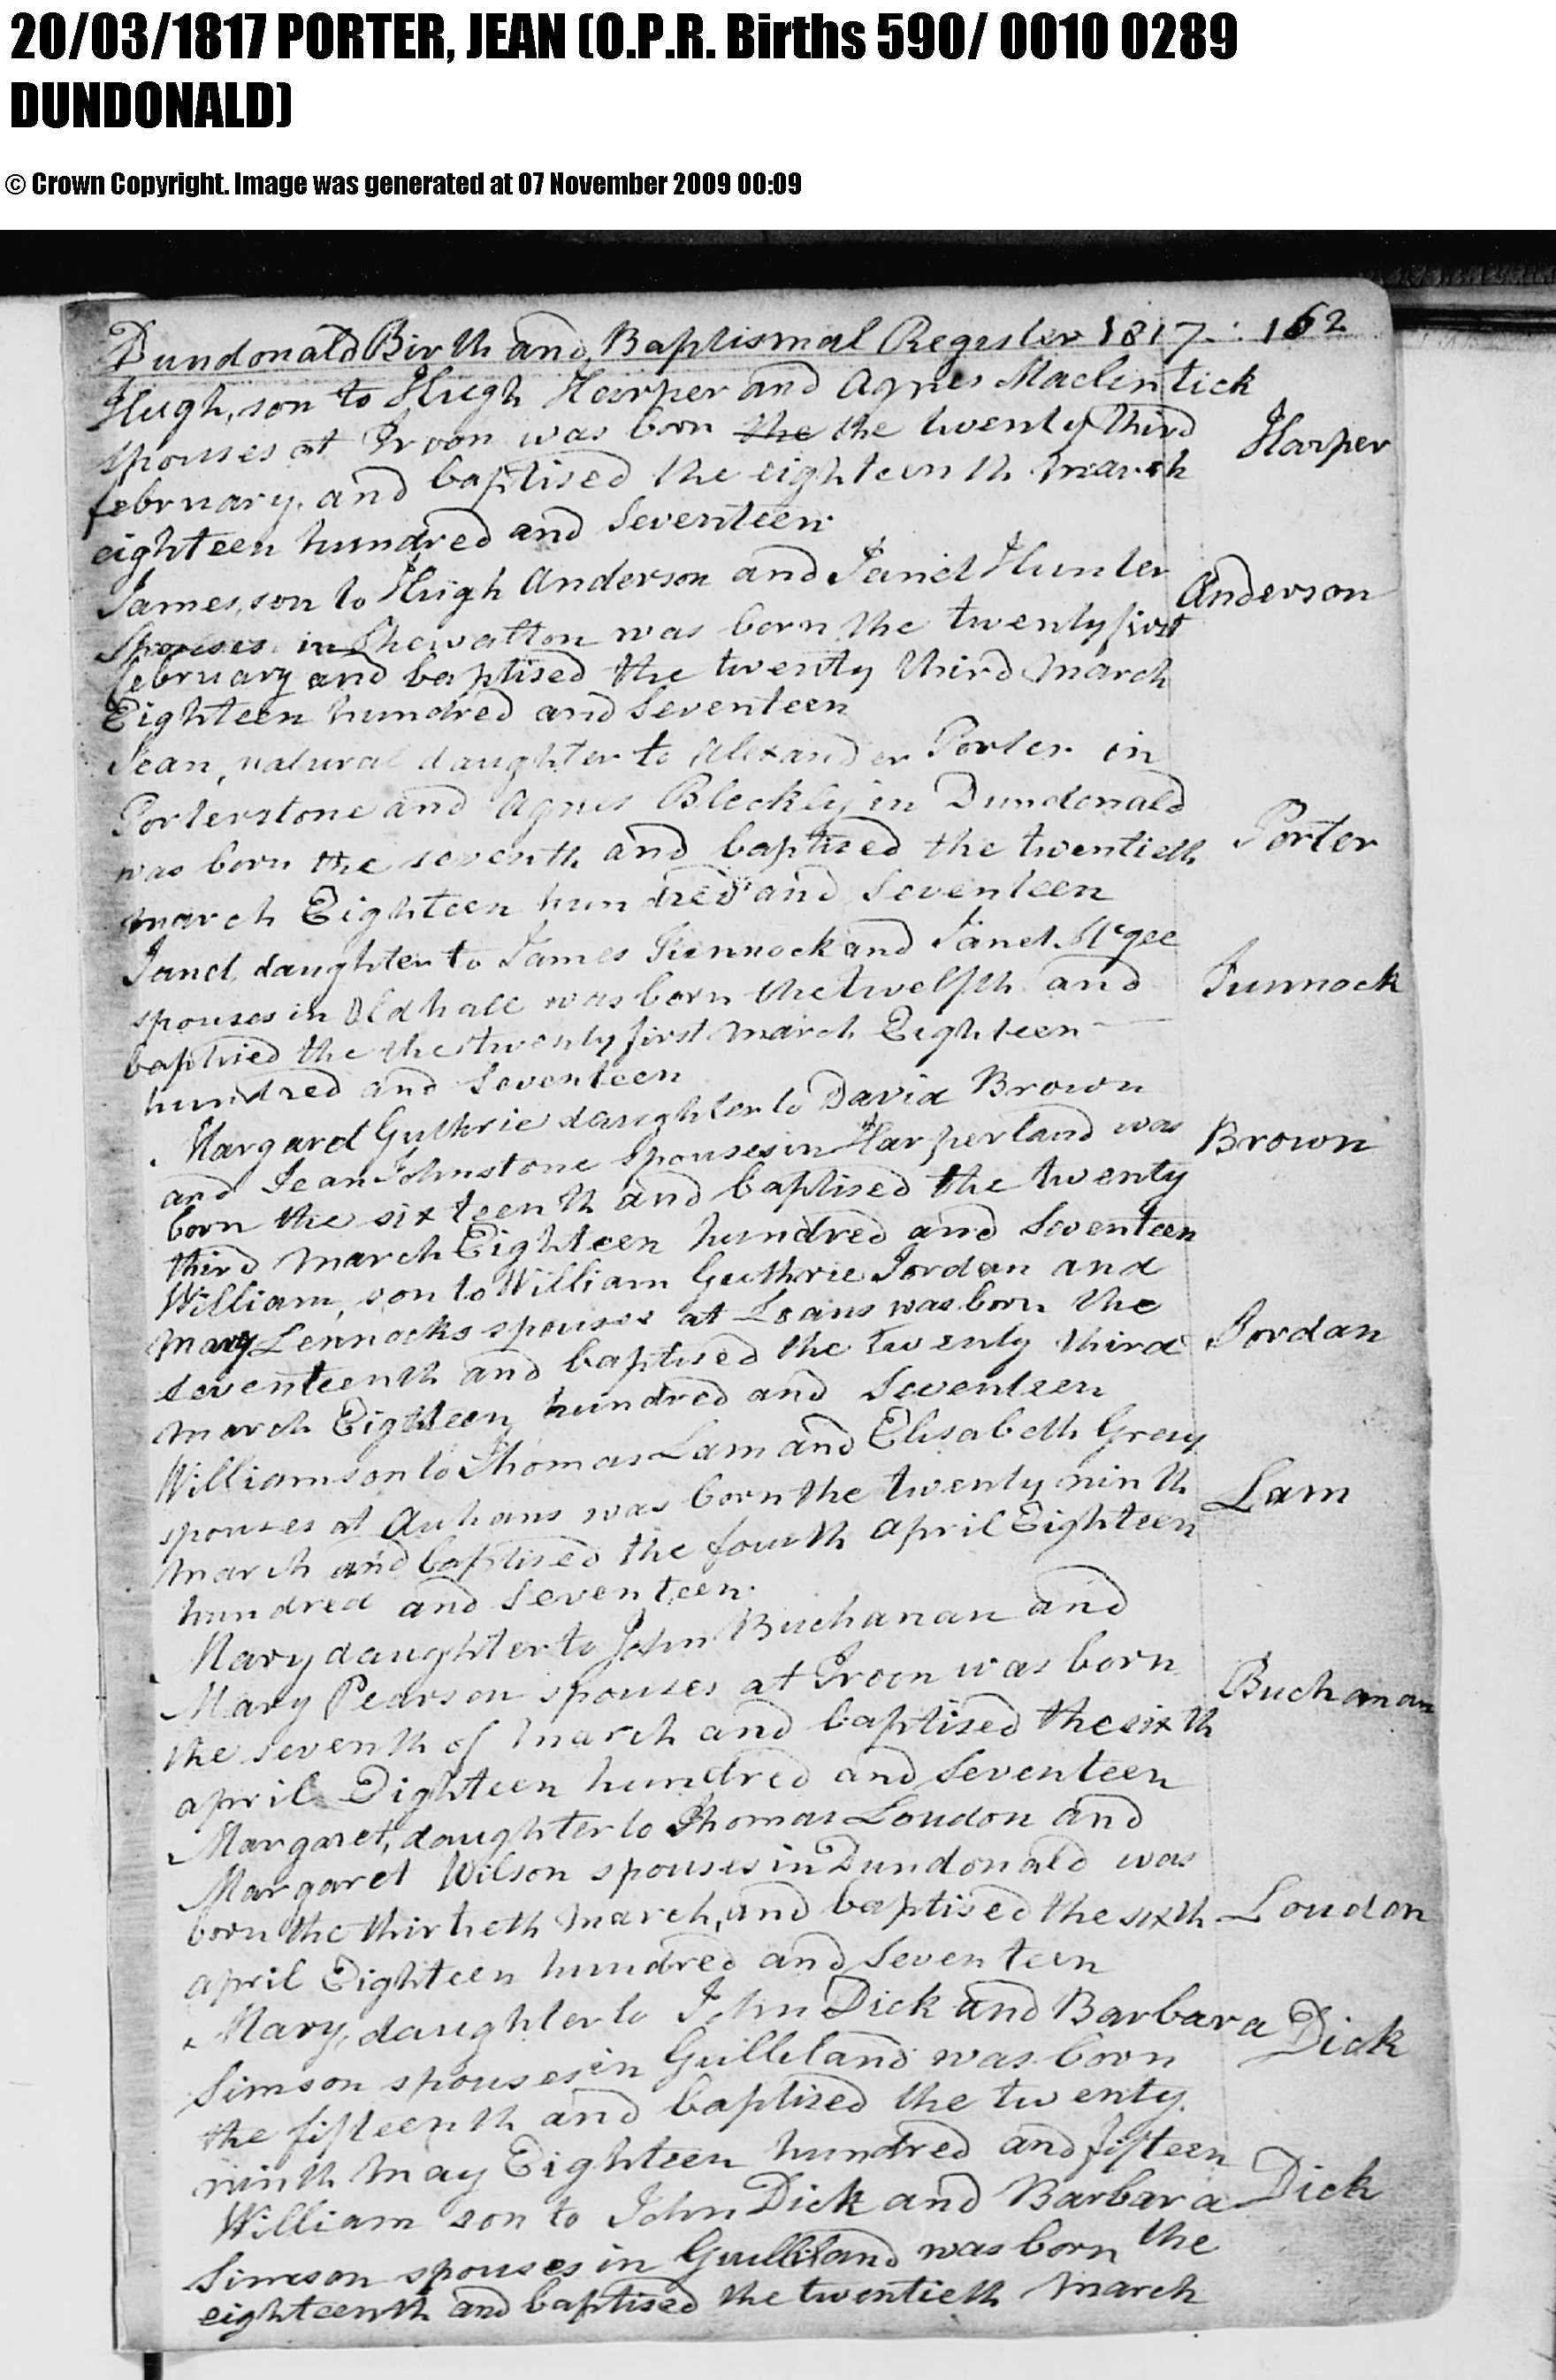 20/03/1817 PORTER, JEAN (O.P.R. Births 590/ 0010 0289
DUNDONALD)
© Crown Copyright. Image was generated at 07 November 2009 00:09
Dundonald Birth and Baptismal Register 1817. 162
Hugh, son to Hugh Harper and Agnes Maclintick
spouses at Troon was born the the twenty third
Harper
february, and baptised the eighteenth march
eighteen hundred and Seventeen
James, son to Hugh Anderson and Janet Hunter
Anderson
Spouses in Shewalton was born the twenty first
february and baptised the twenty third march
Eighteen hundred and Seventeen
Jean, natural daughter to Alexander Porter in
Porterstone and Agnes Bleckly in Dundonald
was born the seventh and baptized the twentieth
Porter
march Eighteen hundred and Seventeen
Janet, daughter to James Junnock and Janet McGee
spouses in Oldhall was born the twelfth and
Junnock
baptised the the twenty first march Eighteen
hundred and Seventeen
Margaret Guthrie daughter to David Brown
and Jean Johnstone spouses in Harperland was
Brown
born the sixteenth and baptised the twenty
third march Eighteen hundred and Seventeen
William, son to William Guthrie Jordan and
mary Lennocks spouses at Loans was born the
Jordan
seventeenth and baptised the twenty third
march Eighteen hundred and Seventeen
William son to Thomas Lam and Elisabeth Gray
spouses at was born the twenty ninth
Lam
march and baptised the fourth april Eighteen
hundred and Seventeen
Mary daughter to John Buchanan and
Mary Pearson spouses at Troon was born
Buchanan
the seventh of march and baptised the sixth
april Eighteen hundred and Seventeen
Margaret, daughter to Thomas Loudon and
Margaret Wilson spouses in Dundonald was
born the thirtieth march, and baptised the sixth
Loudon
april Eighteen hundred and Seventeen
Mary, daughter to John Dick and Barbara
Dick
Simson spouses in Guilliland was born
the fifteenth and baptized the twenty
ninth may Eighteen hundred and fifteen
William son to John Dick and Barbara
Dick
Simson spouses in Guilliland was born the
eighteenth and baptised the twentieth march